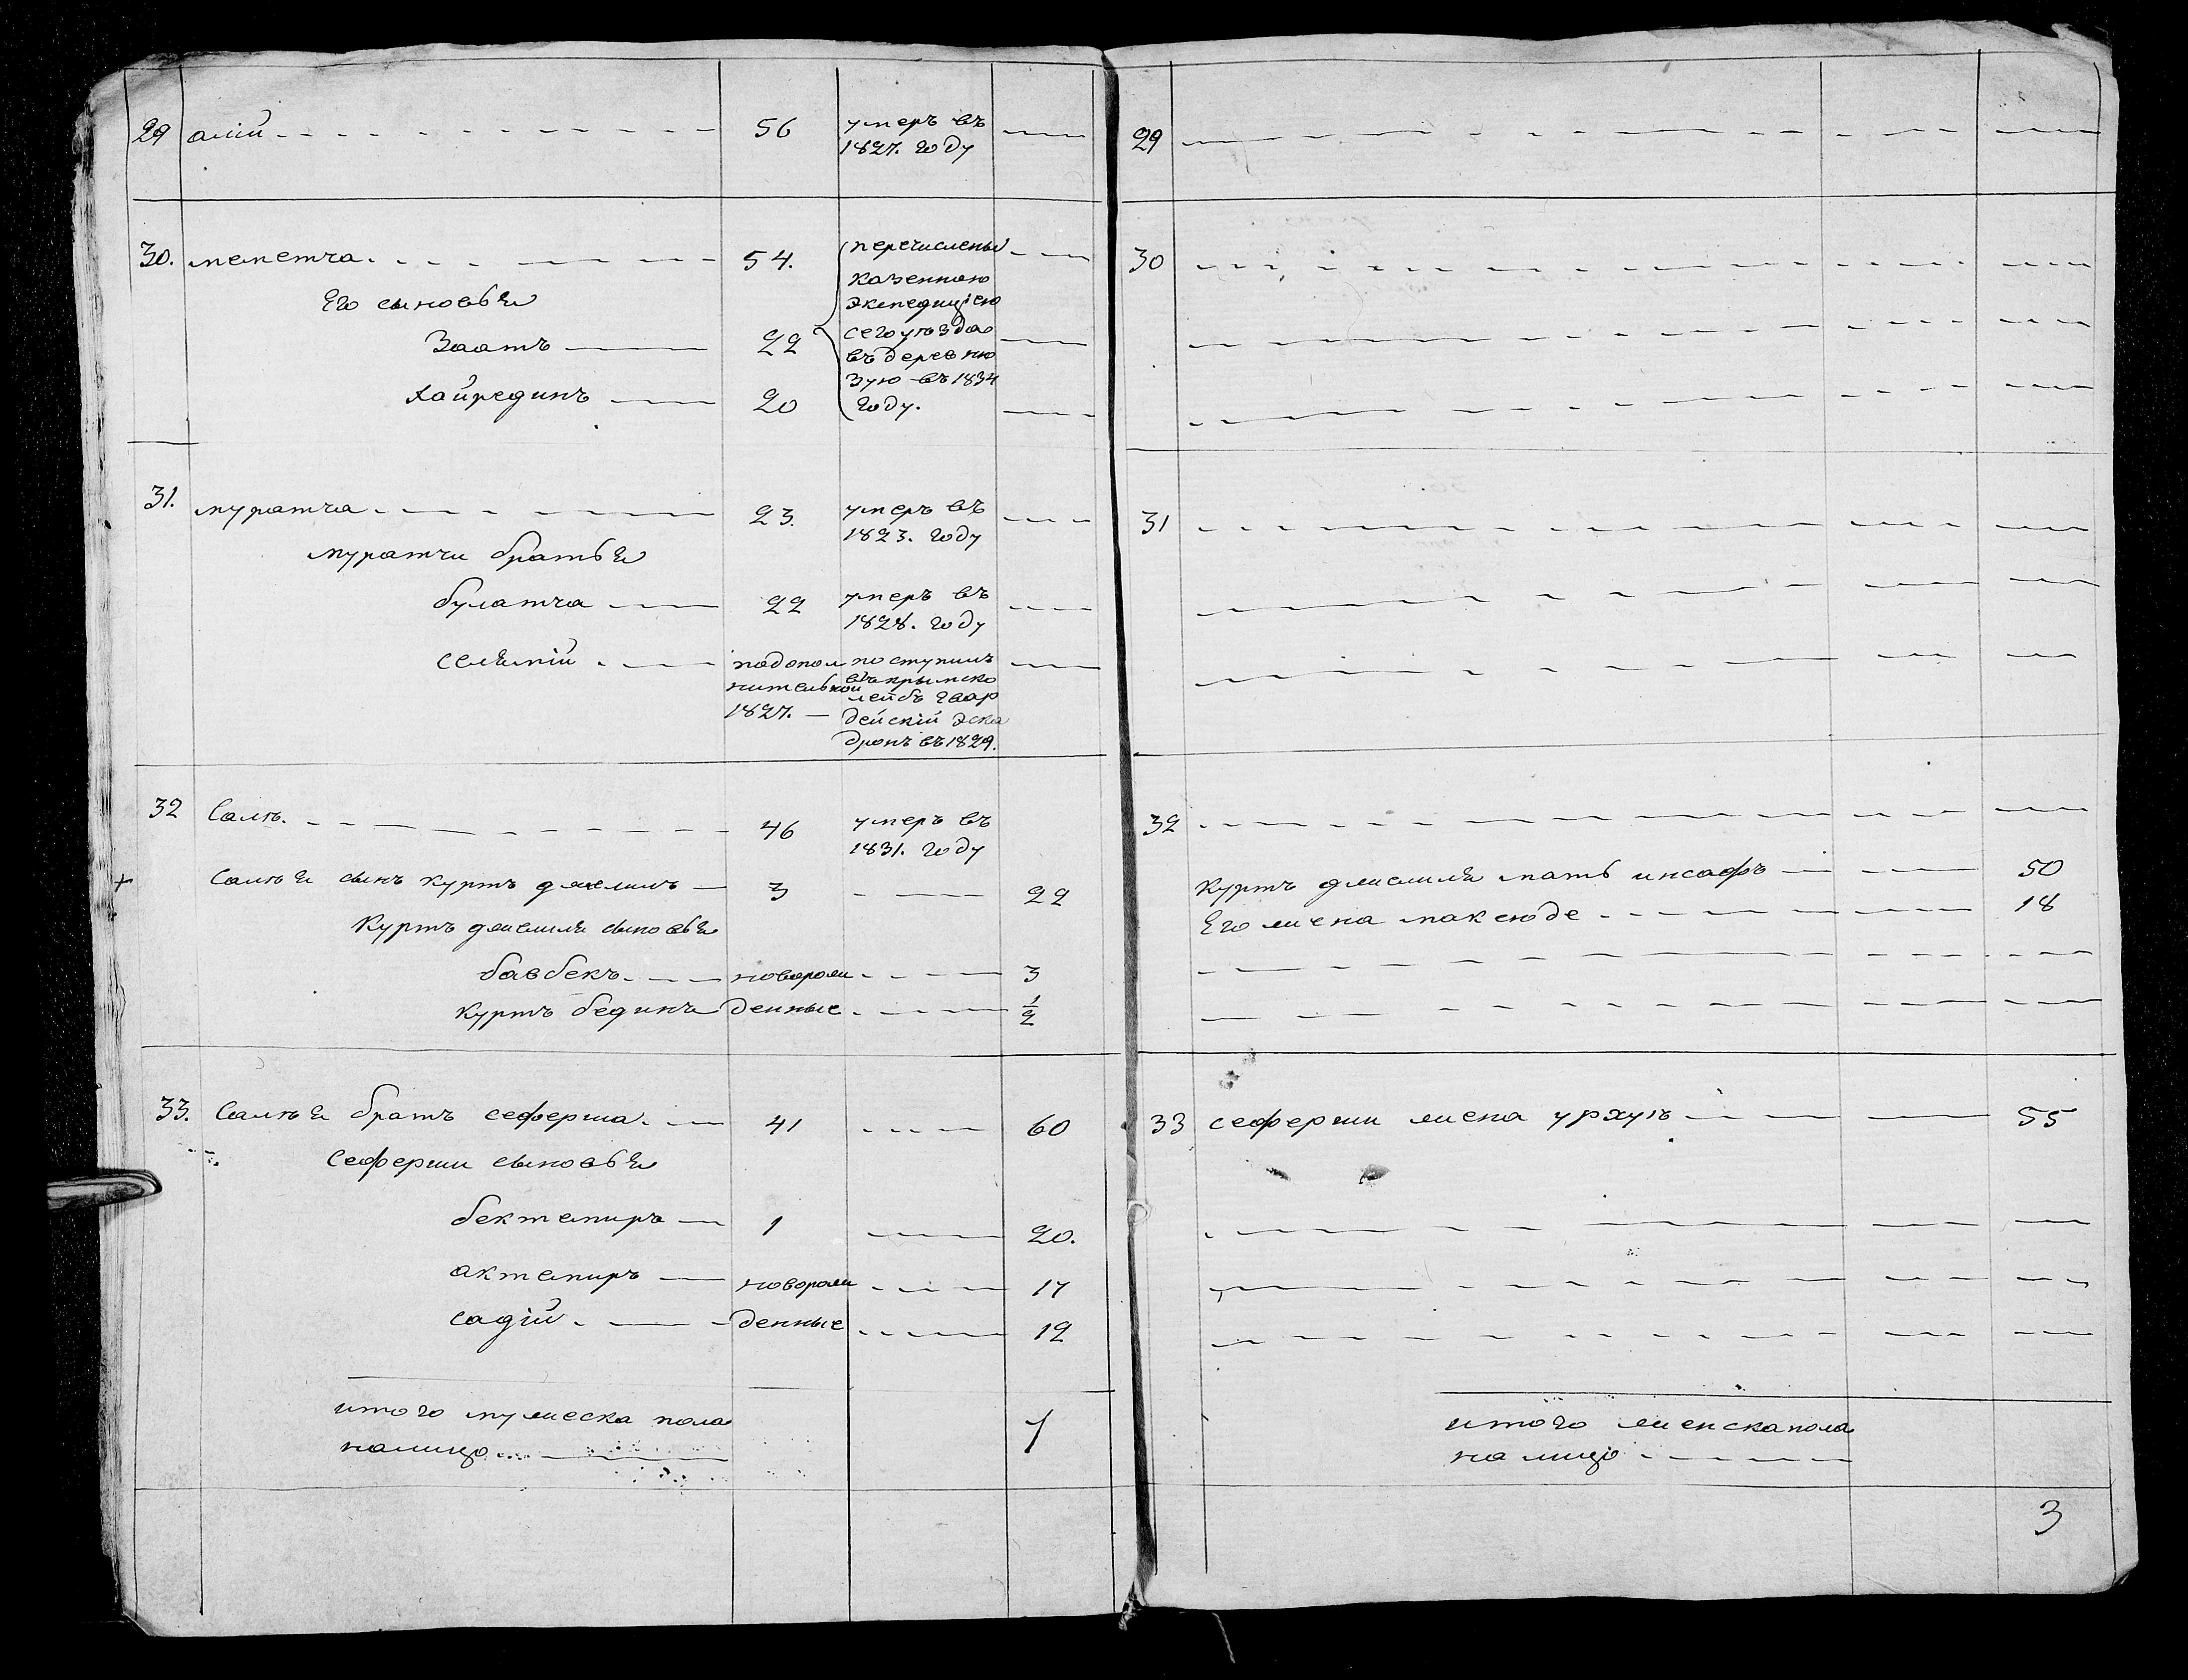 29 алій 56 умеръ въ
1827. году
30. меметча 54. перечислены
казенною
Его сыновья экспедиціею
Заатъ 22 сего уѣзда
въ деревню
Зую въ 1834
Хайрединъ 20 году.
31. муратча 23. умеръ въ
1823. году
муратчи братья
булатча 22 умеръ въ
1828. году
селямій подопол поступилъ
нительной въ крымско
лейбъ гвар
1827. дейскій эска
дронъ въ 1829.
32 Салѣ 46 умеръ въ
1831. году
Салѣя сынъ куртъ джелилъ 3 22
Куртъ джелиля сыновья
бавбекъ новорож 3
куртъ бединъ денные 1/2
33. Салѣя братъ сеферша 41 60
Сеферши сыновья
бектемиръ 1 20.
актемиръ новорож 17
садій денные 12
итого мужеска пола
налицо 7
29
30
31
32
Куртъ джелиля мать инсафъ 50
Его жена максюде 18
33 сеферши жена урхуѣ 55
итого женска пола
на лицо
3